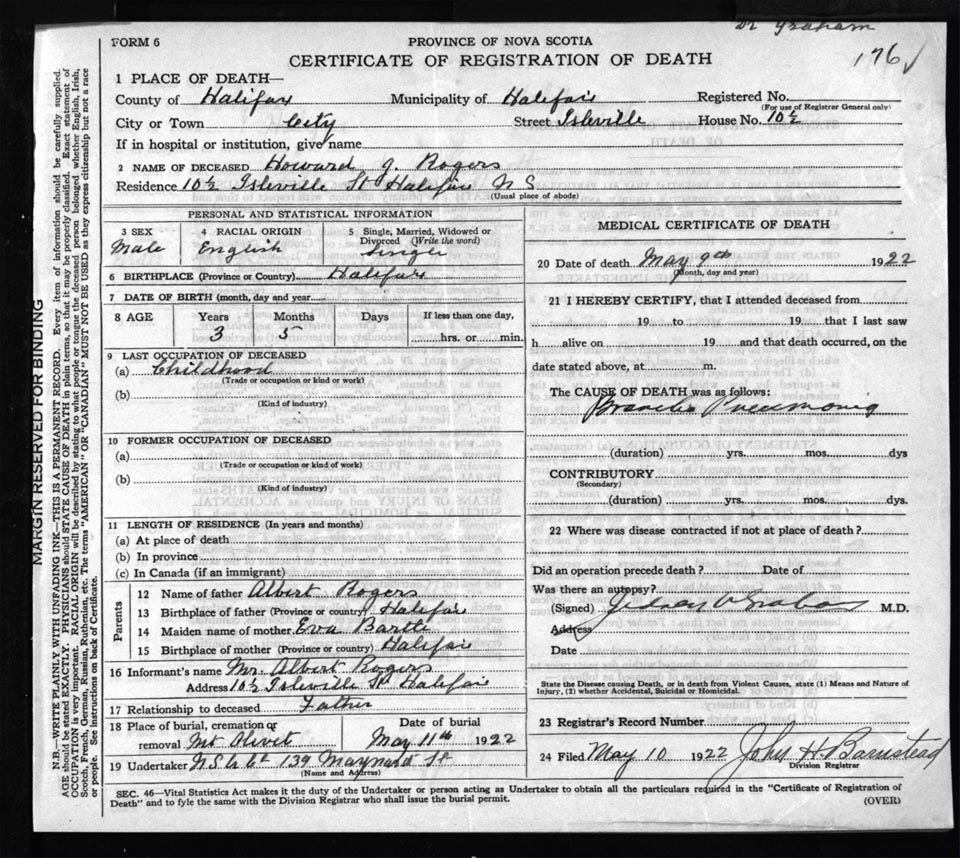 Dr Graham
176
FORM 6
PROVINCE OF NOVA SCOTIA
CERTIFICATE OF REGISTRATION OF DEATH
1 PLACE OF DEATH—
County of Halifax Municipality of Halifax Registered No.
(For use of Registrar General only)
City or Town City Street Isleville House No. 10½
If in hospital or institution, give name
2 NAME OF DECEASED Howard J. Rogers
Residence 10½ Isleville St Halifax N S
(Usual place of abode)
PERSONAL AND STATISTICAL INFORMATION
3 SEX 4 RACIAL ORIGIN 5 Single, Married, Widowed or Divorced (Write the word)
Male English Single
6 BIRTHPLACE (Province or Country) Halifax
7 DATE OF BIRTH (month, day and year)
8 AGE Years Months Days If less than one day,
3 5 hrs. or min.
9 LAST OCCUPATION OF DECEASED
(a) Childhood
(Trade or occupation or kind of work)
(b)
(Kind of industry)
10 FORMER OCCUPATION OF DECEASED
(a)
(Trade or occupation or kind of work)
(b)
(Kind of industry)
11 LENGTH OF RESIDENCE (In years and months)
(a) At place of death
(b) In province
(c) In Canada (if an immigrant)
Parents
12 Name of father Albert Rogers
13 Birthplace of father (Province or country) Halifax
14 Maiden name of mother Eva Bartle
15 Birthplace of mother (Province or country) Halifax
16 Informant's name Mr. Albert Rogers
Address 10½ Isleville St Halifax
17 Relationship to deceased Father
18 Place of burial, cremation or Date of burial
removal Mt Olivet May 11th 1922
19 Undertaker 139 Maynard St
(Name and Address)
MEDICAL CERTIFICATE OF DEATH
20 Date of death May 9th 1922
(Month, day and year)
21 I HEREBY CERTIFY, that I attended deceased from
19 to 19 that I last saw
h alive on 19 and that death occurred, on the
date stated above, at m.
The CAUSE OF DEATH was as follows:
Broncho Pneumonia
(duration) yrs. mos. dys
CONTRIBUTORY
(Secondary)
(duration) yrs. mos. dys.
22 Where was disease contracted if not at place of death?
Did an operation precede death? Date of
Was there an autopsy?
(Signed) M.D.
Address
Date
State the Disease causing Death, or in death from Violent Causes, state (1) Means and Nature of
Injury, (2) whether Accidental, Suicidal or Homicidal.
23 Registrar's Record Number
24 Filed May 10 1922 John H. Barnstead
Division Registrar
SEC. 46—Vital Statistics Act makes it the duty of the Undertaker or person acting as Undertaker to obtain all the particulars required in the "Certificate of Registration of
Death" and to fyle the same with the Division Registrar who shall issue the burial permit.
(OVER)
MARGIN RESERVED FOR BINDING
N.B.—WRITE PLAINLY WITH UNFADING INK—THIS IS A PERMANENT RECORD. Every item of information should be carefully supplied.
AGE should be stated EXACTLY. PHYSICIANS should STATE CAUSE OF DEATH in plain terms, so that it may be properly classified. Exact statement of
OCCUPATION is very important. RACIAL ORIGIN will be described by stating to what people or tongue the deceased person belonged, whether English, Irish,
Scotch, French, German, Russian, Ruthenian, etc. The terms "AMERICAN" OR "CANADIAN" MUST NOT BE USED as they express citizenship but not a race
or people. See instructions on back of Certificate.